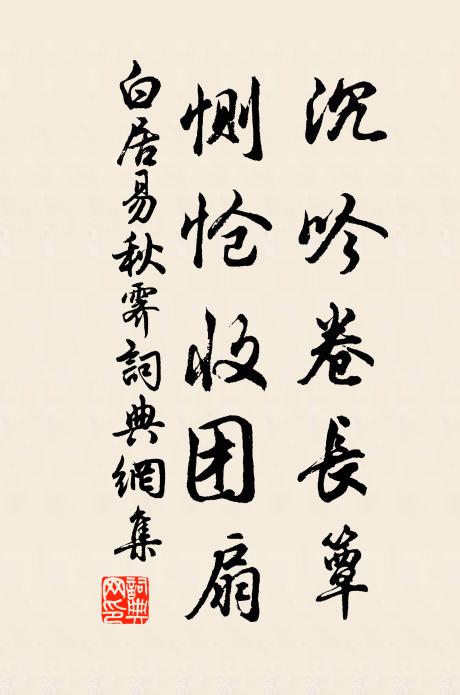 沉吟卷長簟
惻怆收团扇
白居易秋霽詞典網集
詞典网印